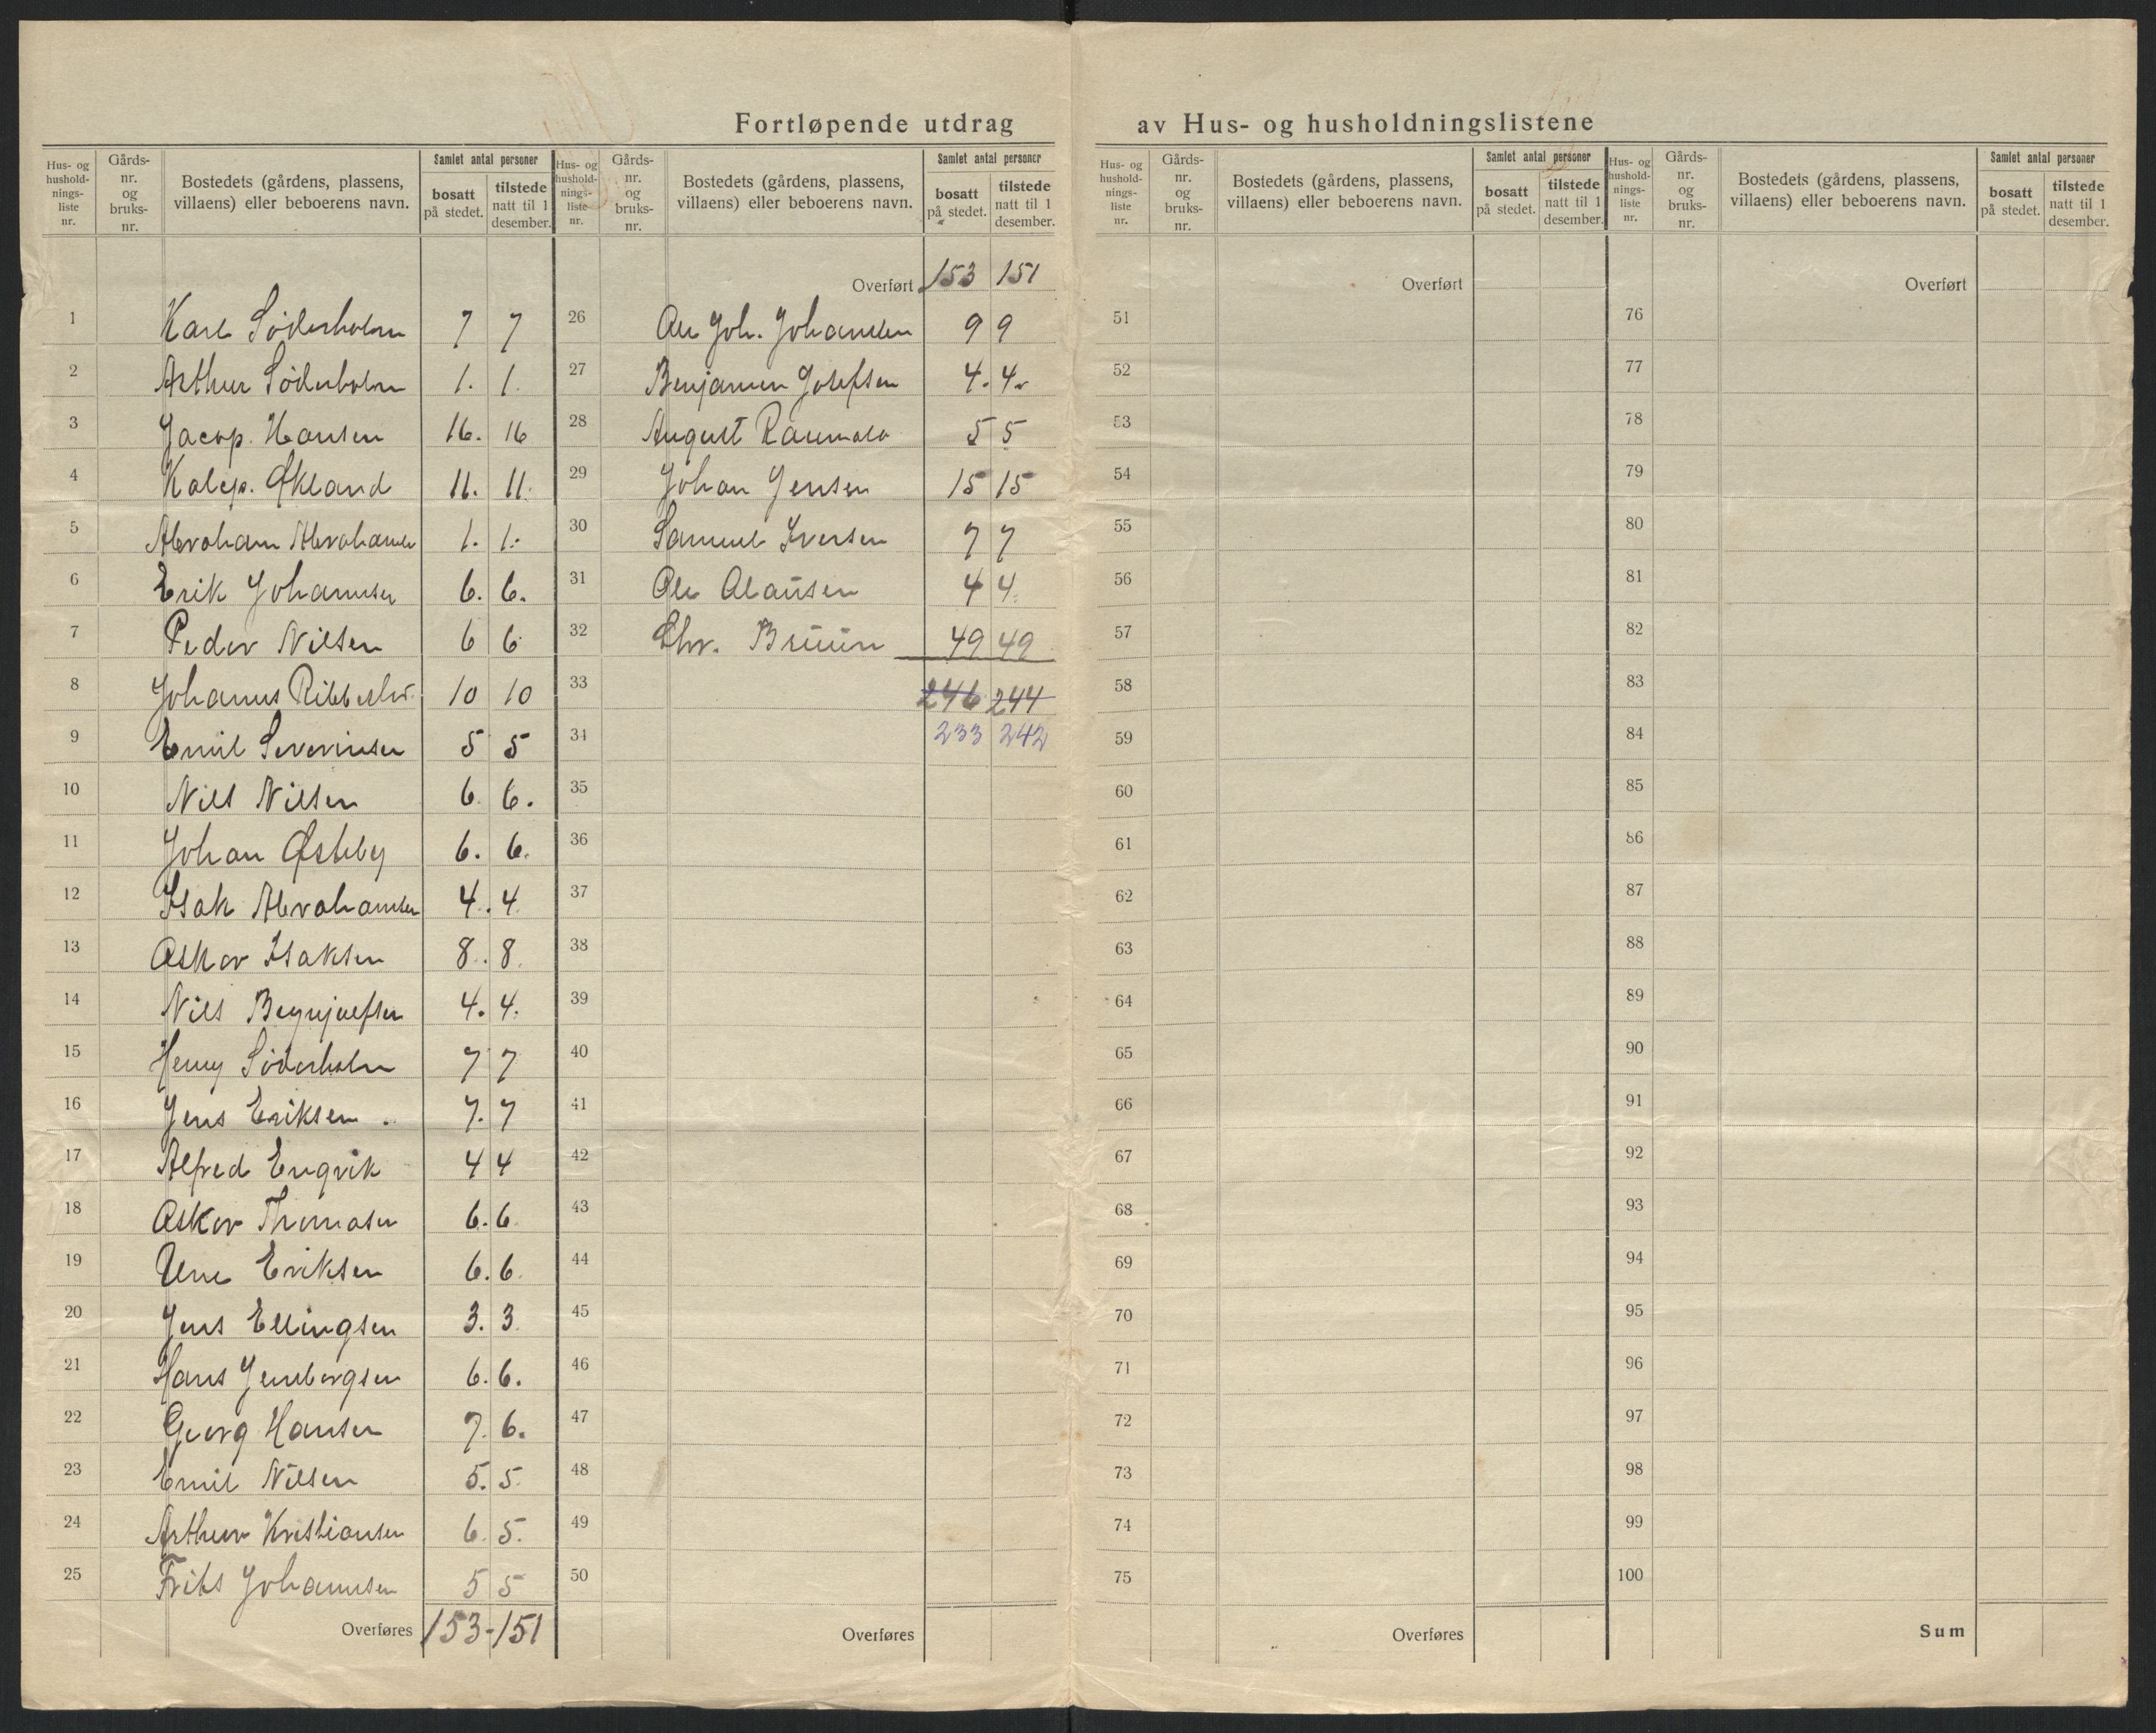 Fortløpende utdrag av Hus- og husholdningslistene
Hus- og hushold- nings- liste nr. | Gårds- nr. og bruks- nr. | Bostedets (gårdens, plassens, villaens) eller beboerens navn. | Samlet antal personer | bosatt på stedet. | tilstede natt til 1 desember.
1 Karl Söderholm 7 7
2 Arthur Söderholm 1. 1.
3 Jacop. Hansen 16. 16
4 Kalep. Økland 11. 11.
5 Abraham Abrahamse 1. 1.
6 Erik Johannsen 6. 6.
7 Peder Nilsen 6 6
8 Johanus 10 10
9 Emil Severinsen 5 5
10 Nils Nilsen 6 6.
11 Johan Østeby 6. 6.
12 Isak Abrahamsen 4. 4.
13 Askar Isaksen 8. 8.
14 Nils 4. 4.
15 Henry Söderholm 7 7
16 Jens Eriksen. 7. 7
17 Alfred Engvik 4 4
18 Asker Thomasen 6. 6
19 Une Eriksen 6. 6.
20 Jens Ellingsen 3. 3.
21 Hans 6. 6.
22 Georg Hansen 7. 6.
23 Emil Nilsen 5. 5.
24 Arthur Kristiansen 6. 5.
25 Frits Johannsen 5 5
Overføres 153 - 151
Hus- og hushold- nings- liste nr. | Gårds- nr. og bruks- nr. | Bostedets (gårdens, plassens, villaens) eller beboerens navn. | Samlet antal personer | bosatt på stedet. | tilstede natt til 1 desember.
Overført 153 151
26 Ole Joh. Johansen 9 9
27 Benjamin Josefsen 4. 4.
28 August 5 5
29 Johan Jensen 15 15
30 Samuel Iversen 7 7
31 Ole Olaüsen 4 4.
32 Chr. Brüün 49 49
33 246 244
34 233 242
35
36
37
38
39
40
41
42
43
44
45
46
47
48
49
50
Overføres
Hus- og hushold- nings- liste nr. | Gårds- nr. og bruks- nr. | Bostedets (gårdens, plassens, villaens) eller beboerens navn. | Samlet antal personer | bosatt på stedet. | tilstede natt til 1 desember.
Overført
51
52
53
54
55
56
57
58
59
60
61
62
63
64
65
66
67
68
69
70
71
72
73
74
75
Overføres
Hus- og hushold- nings- liste nr. | Gårds- nr. og bruks- nr. | Bostedets (gårdens, plassens, villaens) eller beboerens navn. | Samlet antal personer | bosatt på stedet. | tilstede natt til 1 desember.
Overført
76
77
78
79
80
81
82
83
84
85
86
87
88
89
90
91
92
93
94
95
96
97
98
99
100
Sum